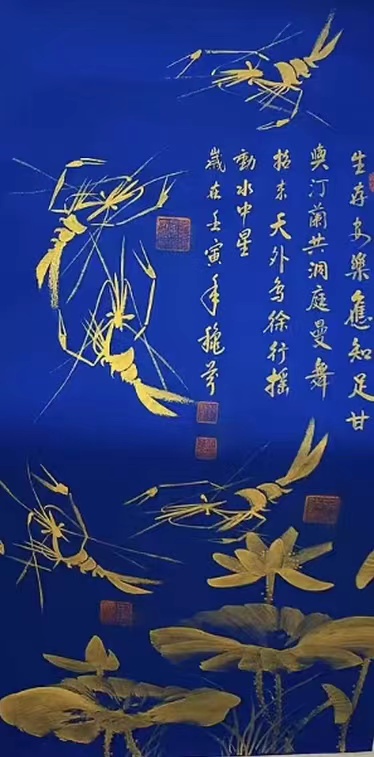 生存多樂應知足甘
與汀蘭共洞庭曼舞
招來天外鳥徐行搖
動水中星
歲在壬寅年